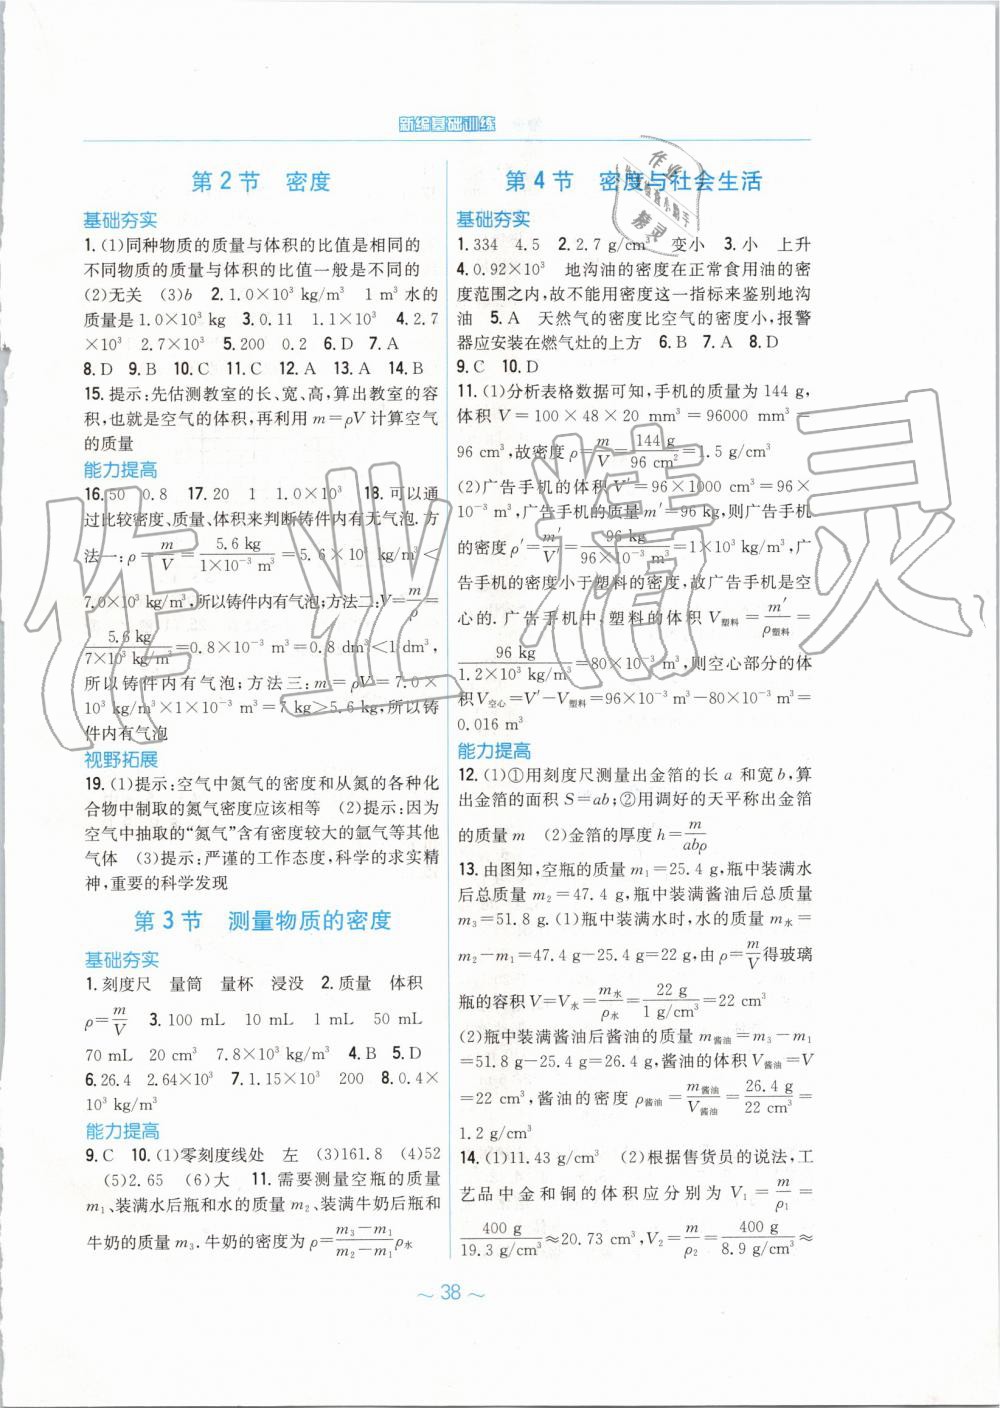 新编基础训练
第2节 密度
基础夯实
1.(1)同种物质的质量与体积的比值是相同的
不同物质的质量与体积的比值一般是不同的
(2)无关 (3)b 2.1.0×10³ kg/m³ 1 m³水的
质量是1.0×10³ kg 3.0.11 1.1×10³ 4.2.7
×10³ 2.7×10³ 5.200 0.2 6.D 7.A
8.D 9.B 10.C 11.C 12.A 13.A 14.B
15.提示:先估测教室的长、宽、高,算出教室的容
积,也就是空气的体积,再利用m=ρV计算空气
的质量
能力提高
16.50 0.8 17.20 1 1.0×10³ 18.可以通
过比较密度、质量、体积来判断铸件内有无气泡.方
法一:ρ=m/V=5.6 kg/1×10⁻³ m³=5.6×10³ kg/m³<
7.0×10³ kg/m³,所以铸件内有气泡;方法二:V=m/ρ=
5.6 kg/7×10³ kg/m³=0.8×10⁻³ m³=0.8 dm³<1 dm³,
所以铸件内有气泡;方法三:m=ρV=7.0×
10³ kg/m³×1×10⁻³ m³=7 kg>5.6 kg,所以铸
件内有气泡
视野拓展
19.(1)提示:空气中氮气的密度和从氮的各种化
合物中制取的氮气密度应该相等 (2)提示:因为
空气中抽取的“氮气”含有密度较大的氩气等其他
气体 (3)提示:严谨的工作态度,科学的求实精
神,重要的科学发现
第3节 测量物质的密度
基础夯实
1.刻度尺 量筒 量杯 浸没 2.质量 体积
ρ=m/V 3.100 mL 10 mL 1 mL 50 mL
70 mL 20 cm³ 7.8×10³ 4.B 5.D
6.26.4 2.64×10³ 7.1.15×10³ 200 8.0.4×
10³ kg/m³
能力提高
9.C 10.(1)零刻度线处 左 (3)161.8 (4)52
(5)2.65 (6)大 11.需要测量空瓶的质量
m₁、装满水后瓶和水的质量m₂、装满牛奶后瓶和
牛奶的质量m₃.牛奶的密度为ρ=(m₃-m₁)/(m₂-m₁)ρ水
第4节 密度与社会生活
基础夯实
1.334 4.5 2.2.7 g/cm³ 变小 3.小 上升
4.0.92×10³ 地沟油的密度在正常食用油的密
度范围之内,故不能用密度这一指标来鉴别地沟
油 5.A 天然气的密度比空气的密度小,报警
器应安装在燃气灶的上方 6.B 7.A 8.D
9.C 10.D
11.(1)分析表格数据可知,手机的质量为144 g,
体积V=100×48×20 mm³=96000 mm³=
96 cm³,故密度ρ=m/V=144 g/96 cm³=1.5 g/cm³
(2)广告手机的体积V′=96×1000 cm³=96×
10⁻³ m³,广告手机的质量m′=96 kg,则广告手机
的密度ρ′=m′/V′=96 kg/96×10⁻³ m³=1×10³ kg/m³,广
告手机的密度小于塑料的密度,故广告手机是空
心的.广告手机中,塑料的体积V塑料=m′/ρ塑料=
96 kg/1.2×10³ kg/m³=80×10⁻³ m³,则空心部分的体
积V空心=V′-V塑料=96×10⁻³ m³-80×10⁻³ m³=
0.016 m³
能力提高
12.(1)①用刻度尺测量出金箔的长a和宽b,算
出金箔的面积S=ab;②用调好的天平称出金箔
的质量m (2)金箔的厚度h=m/abρ
13.由图知,空瓶的质量m₁=25.4 g,瓶中装满水
后总质量m₂=47.4 g,瓶中装满酱油后总质量
m₃=51.8 g.(1)瓶中装满水时,水的质量m水=
m₂-m₁=47.4 g-25.4 g=22 g,由ρ=m/V得玻璃
瓶的容积V=V水=m水/ρ水=22 g/1 g/cm³=22 cm³
(2)瓶中装满酱油后酱油的质量m酱油=m₃-m₁
=51.8 g-25.4 g=26.4 g,酱油的体积V酱油=V
=22 cm³,酱油的密度ρ酱油=m酱油/V酱油=26.4 g/22 cm³=
1.2 g/cm³
14.(1)11.43 g/cm³ (2)根据售货员的说法,工
艺品中金和铜的体积应分别为V₁=m/ρ₁=
400 g/19.3 g/cm³≈20.73 cm³,V₂=m/ρ₂=400 g/8.9 g/cm³≈
~38~
作业精灵